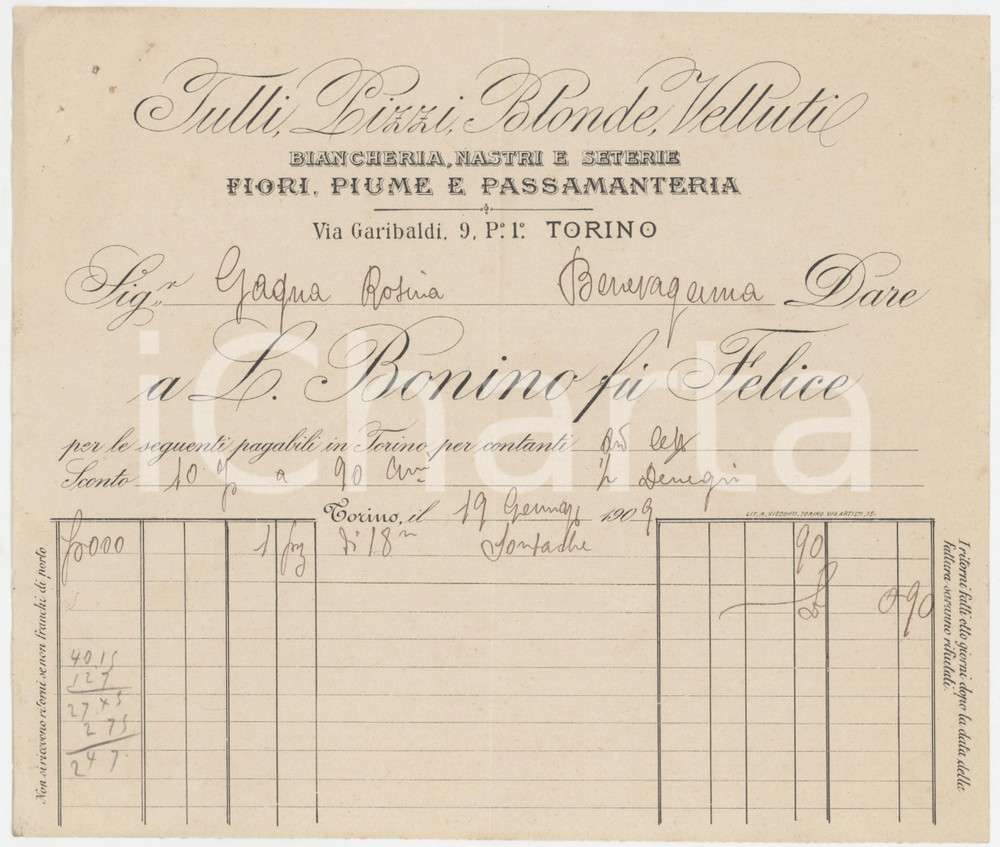 Tulli, Pizzi, Blonde, Velluti
BIANCHERIA, NASTRI E SETERIE
FIORI, PIUME E PASSAMANTERIA
Via Garibaldi, 9, P.º 1.º TORINO
Sig.r Gagna Rosina Benevagenna Dare
a L. Bonino fù Felice
per le seguenti pagabili in Torino, per contanti
Sconto 10 % a 90
Torino, il 19 1909
LIT. A. VISCONTI, TORINO. VIA ARTISTI, 15.
1 di 18 m Soutache 90
0 90
40.15
127
2745
275
247
Non si ricevono ritorni se non franchi di porto
I ritorni fatti otto giorni dopo la data della
fattura saranno rifiutati.
iCharta